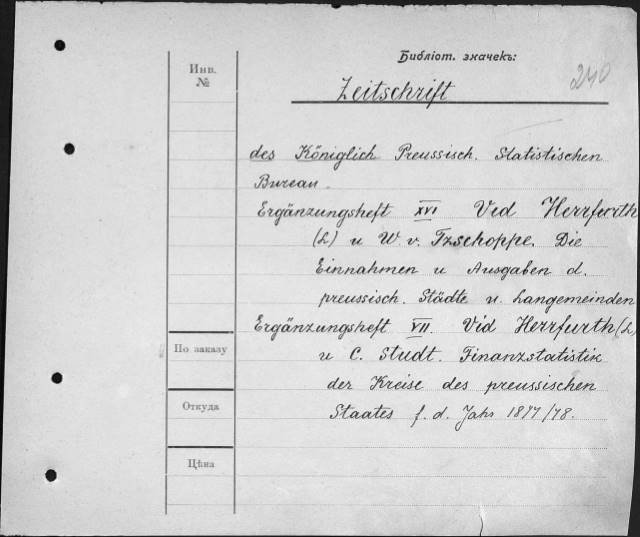 Библіот. значекъ:
Инв.
№
240
Zeitschrift
des Königlich Preussisch. Statistischen
Bureau
Ergänzungsheft XVI Vid Herrfurth
(L) u W. v. Tzschoppe. Die
Einnahmen u Ausgaben d.
preussisch. Städte u. Langemeinden
Ergänzungsheft VII. Vid Herrfurth (L)
u C. Studt. Finanzstatistik
der Kreise des preussischen
Staates f. d. Jahr 1877/78.
По заказу
Откуда
Цѣна